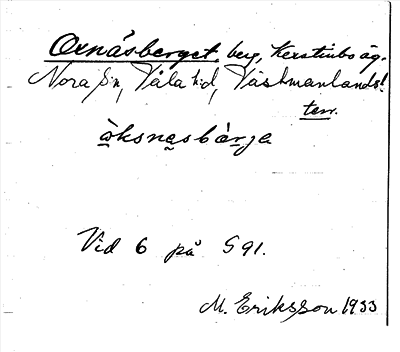 Oxnäsberget, berg, Kerstinbo äg.
Nora sn, Våla hd, Västmanlands l.
terr.
òksnesbàrja
Vid 6 på S 91.
M. Eriksson 1933